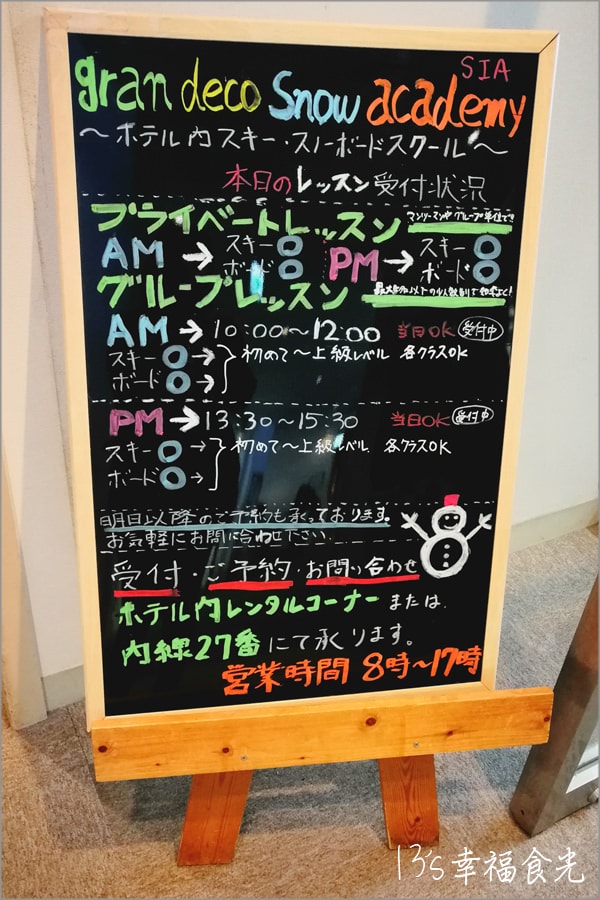 SIA
gran deco Snow academy
～ホテル内スキー・スノーボードスクール～
本日のレッスン受付状況
プライベートレッスン マンツーマンやグループ単位で!
AM→ スキー○ PM→ スキー○
ボード○ ボード○
グループレッスン
AM→10:00～12:00 当日OK 受付中
スキー○→ 初めて～上級レベル 各クラスOK
ボード○→
PM→13:30～15:30 当日OK 受付中
スキー○→ 初めて～上級レベル 各クラスOK
ボード○→
明日以降のご予約も承っております。
お気軽にお問い合わせ下さい。
受付・ご予約・お問い合わせ
ホテル内レンタルコーナーまたは、
内線27番にて承ります。
営業時間 8時～17時
13's幸福食光